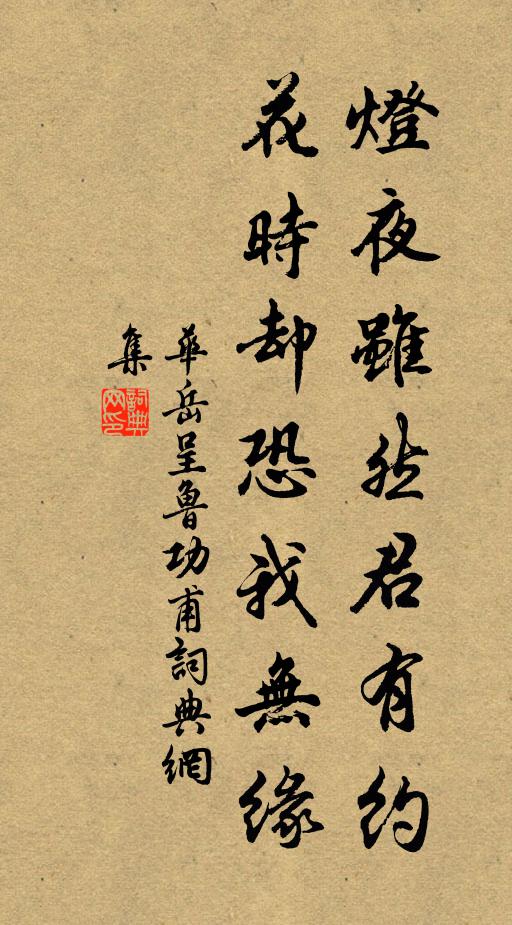 燈夜雖然君有約
花時却恐我無緣
華岳呈魯功甫詞典網
集
詞典網印